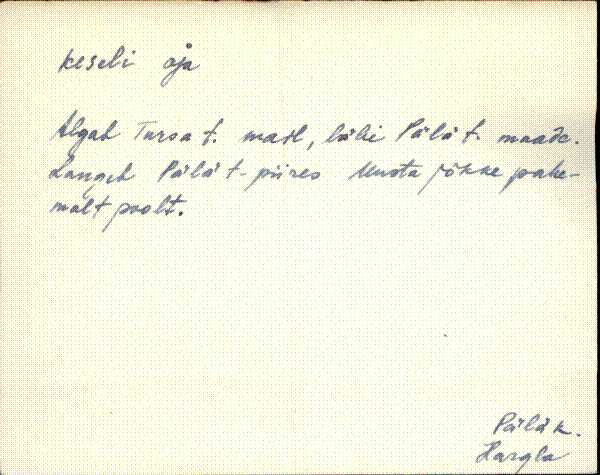 Keseli oja
Algab Tursa t. maal, läbi Pälä t. maade.
Langeb Pälä t-piires Musta jõkke pahe-
malt poolt.
Pälä k.
Hargla